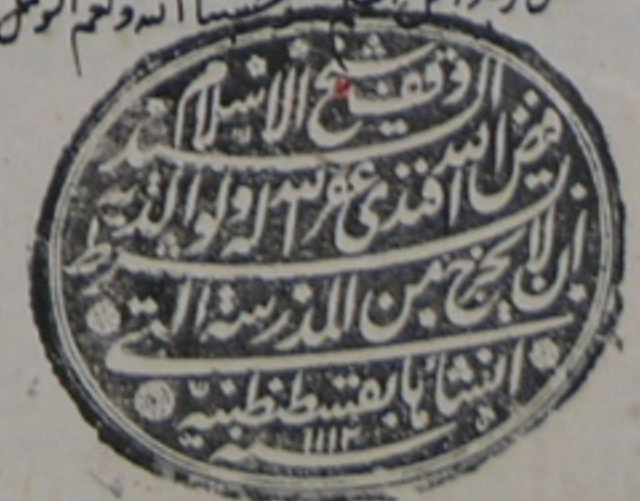 حسبنا الله ونعم الوكيل
وقف شيخ الاسلام السيد
فيض الله افندى غفر الله له ولوالديه
بشرط ان لا يخرج من المدرسة التي
انشأها بقسطنطينية
سنة ١١١٢